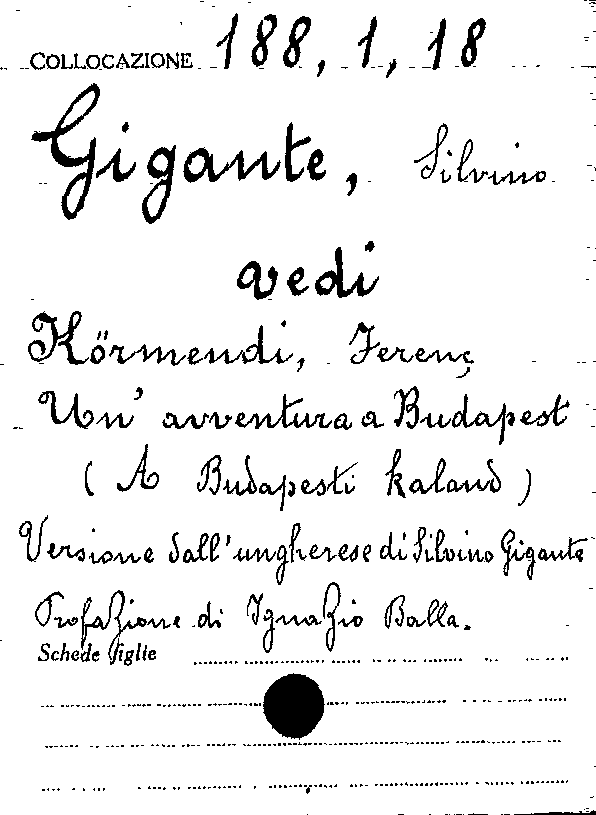 COLLOCAZIONE 188, 1, 18
Gigante, Silvino
vedi
Körmendi, Ferenç
Un' avventura a Budapest
( A Budapesti kaland )
Versione dall'ungherese di Silvino Gigante
Profazione di Ignazio Balla.
Schede figlie